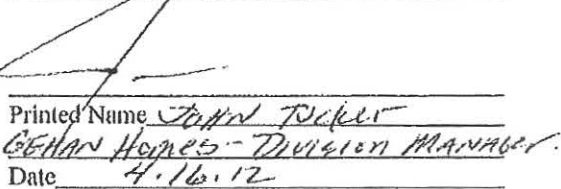 Printed Name John Tucker
GEHAN Homes - Division Manager.
Date 4.16.12